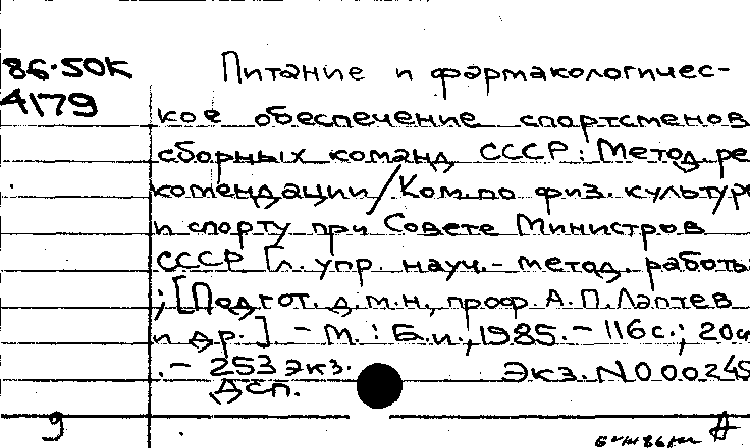 86-50К Питание и фармакологичес-
4179 кое обеспечение спортсменов
сборных команд СССР: Метод. ре
комендации/Ком. по физ. культуре
и спорту при Совете Министров
СССР [Гл. упр. науч.-метод. работы
; [Подгот. д.м.н., проф. А.П. Лаптев
и др.] - М.: Б.и., 1985. - 116 с.; 20
. - 253 экз. Экз. N 000245
ДСП.
9